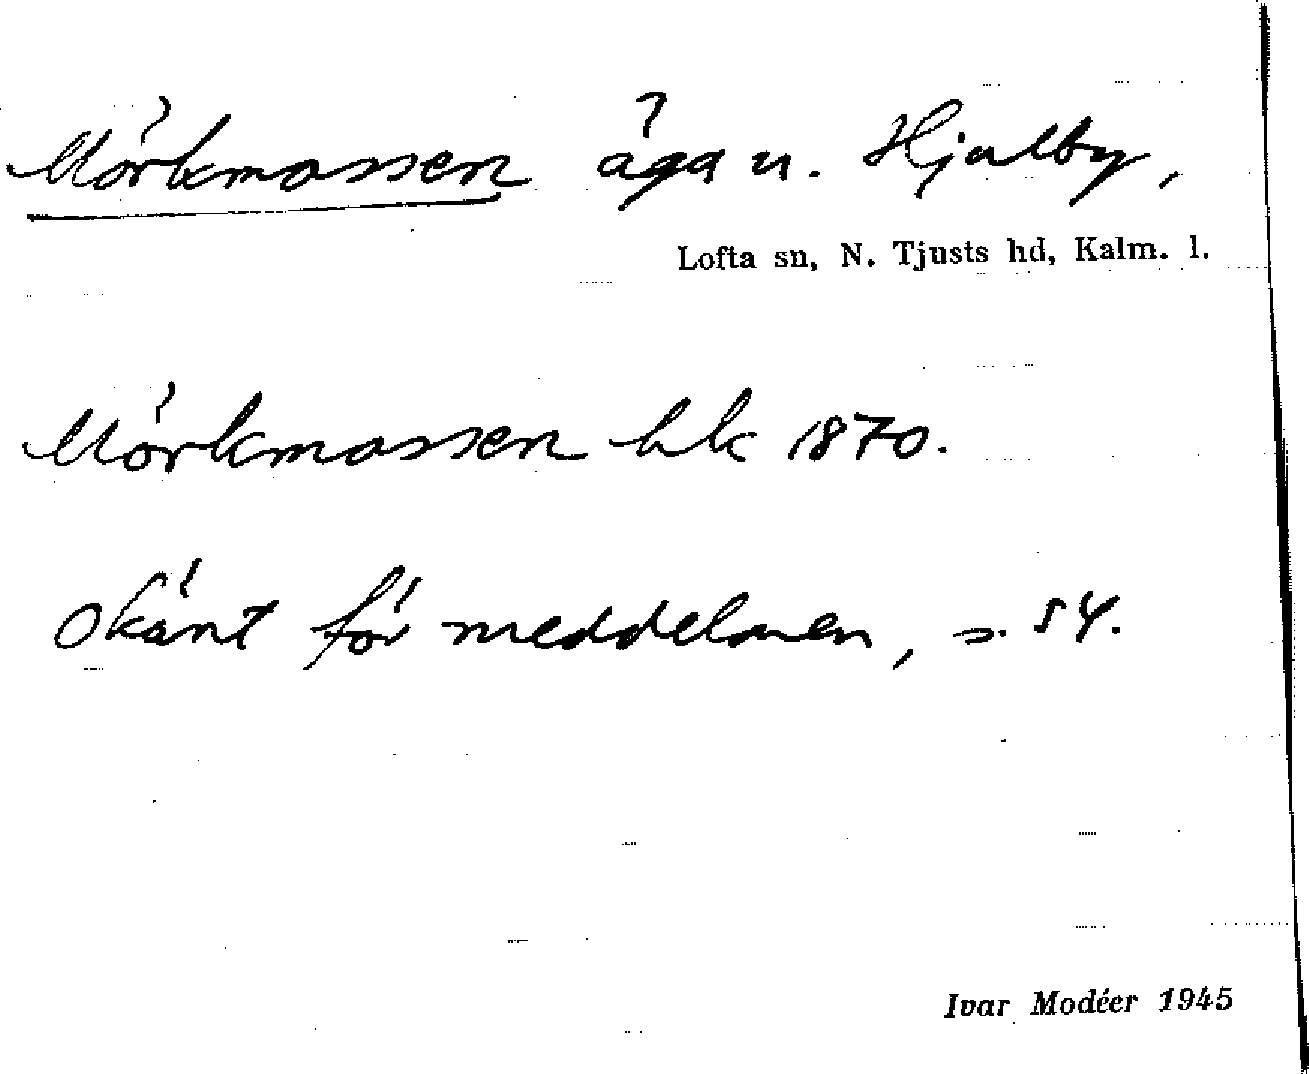 Mörkmossen äga u. Hjalby,
Lofta sn, N. Tjusts hd, Kalm. l.
Mörkmossen hlk 1870.
Okänt för meddelaren, s. 54.
Ivar Modéer 1945